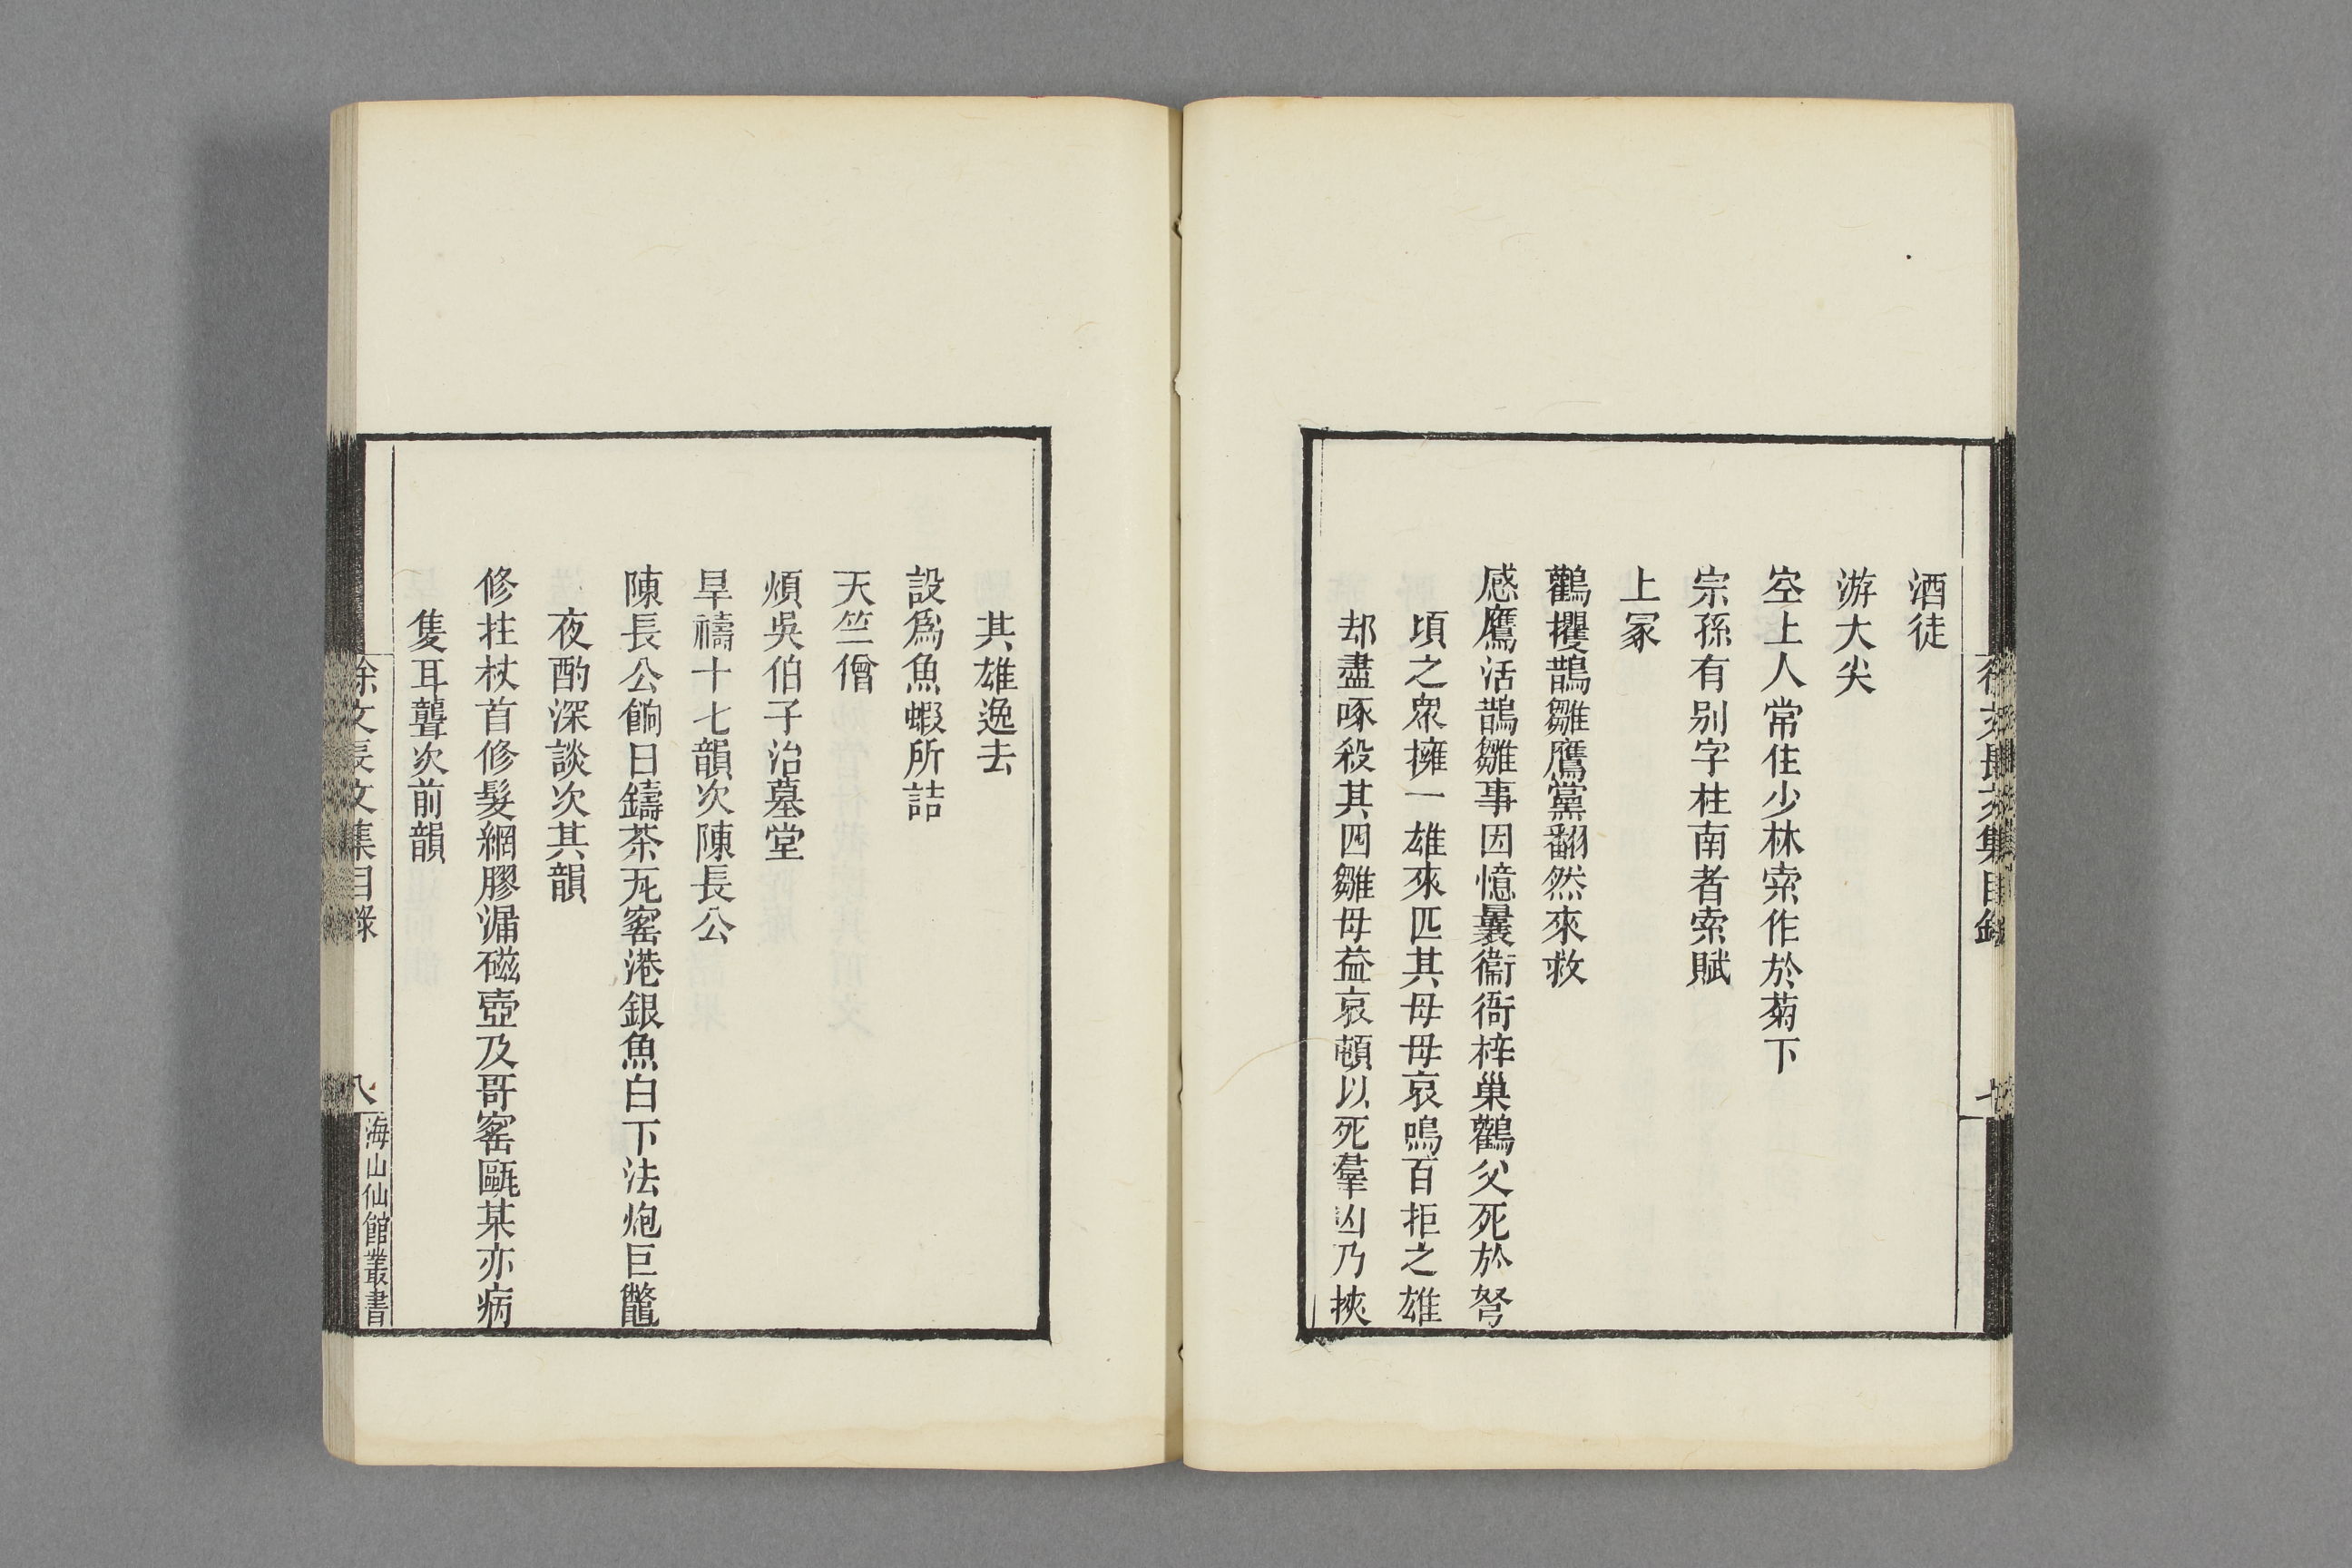 酒徒
游大尖
空上人常住少林索作於菊下
宗孫有别字柱南者索賦
上冢
鸛攫鵲雛鷹黨翻然來救
感鷹活鵲雛事因憶曩衞衙梓巢鸛父死於弩
頃之衆擁一雄來匹其母母哀鳴百拒之雄
却盡啄殺其四雛母益哀頓以死羣凶乃挾
徐文長文集目錄
七
其雄逸去
設爲魚蝦所詰
天竺僧
煩吳伯子治墓堂
旱禱十七韻次陳長公
陳長公餉日鑄茶瓦窰港銀魚白下法炮巨鼈
夜酌深談次其韻
修拄杖首修髮網膠漏磁壺及哥窰甌某亦病
隻耳聾次前韻
徐文長文集目錄
八
海山仙館叢書